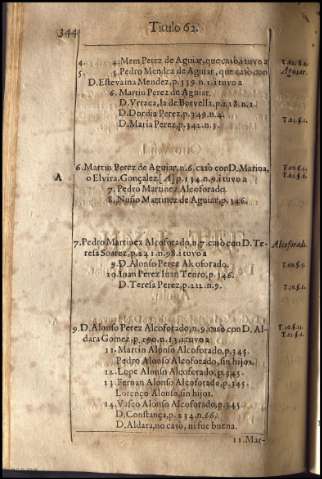 344
Titulo 62.
4. 4. Mem Perez de Aguiar, que casò tuvo a
5. 5. Pedro Mendez de Aguiar, que casò con
D. Estevaina Mendez, p. 339. n. 1. itvo a
Aguiar.
6. Martin Perez de Aguiar.
D. Vrraca, la de Borvella. p. 118. n. 1.
D. Dordia Perez, p. 349. n. 4.
D. Maria Perez, p. 342. n. 3.
A
6. Martin Perez de Aguiar, n. 6. casò con D. Marina,
o Elvira Gonçalez [A] p. 134. n. 9. itvo a
7. Pedro Martinez Alcoforado.
8. Nuño Martinez de Aguiar, p. 346.
7. Pedro Martinez Alcoforado, n. 7. casò con D. Te-
resa Soarez, p. 221. n. 98. i tuvo a
Alcoforado.
9. D. Alonso Perez Alcoforado.
10. Iuan Perez Iuan Tenro, p. 146.
D. Teresa Perez, p. 212. n. 9.
9. D. Alonso Perez Alcoforado, n. 9. casò con D. Al-
dara Gomez, p. 290. n. 13. itvo a
11. Martin Alonso Alcoforado, p. 345.
Pedro Alonso Alcoforado, sin hijos.
12. Lope Alonso Alcoforado, p. 345.
13. Fernan Alonso Alcoforado, p. 345.
Lorenço Alonso, sin hijos.
14. Vasco Alonso Alcoforado, p. 345
D. Constança, p. 234. n. 66.
D. Aldara, no casò, ni fue buena.
11. Mar-